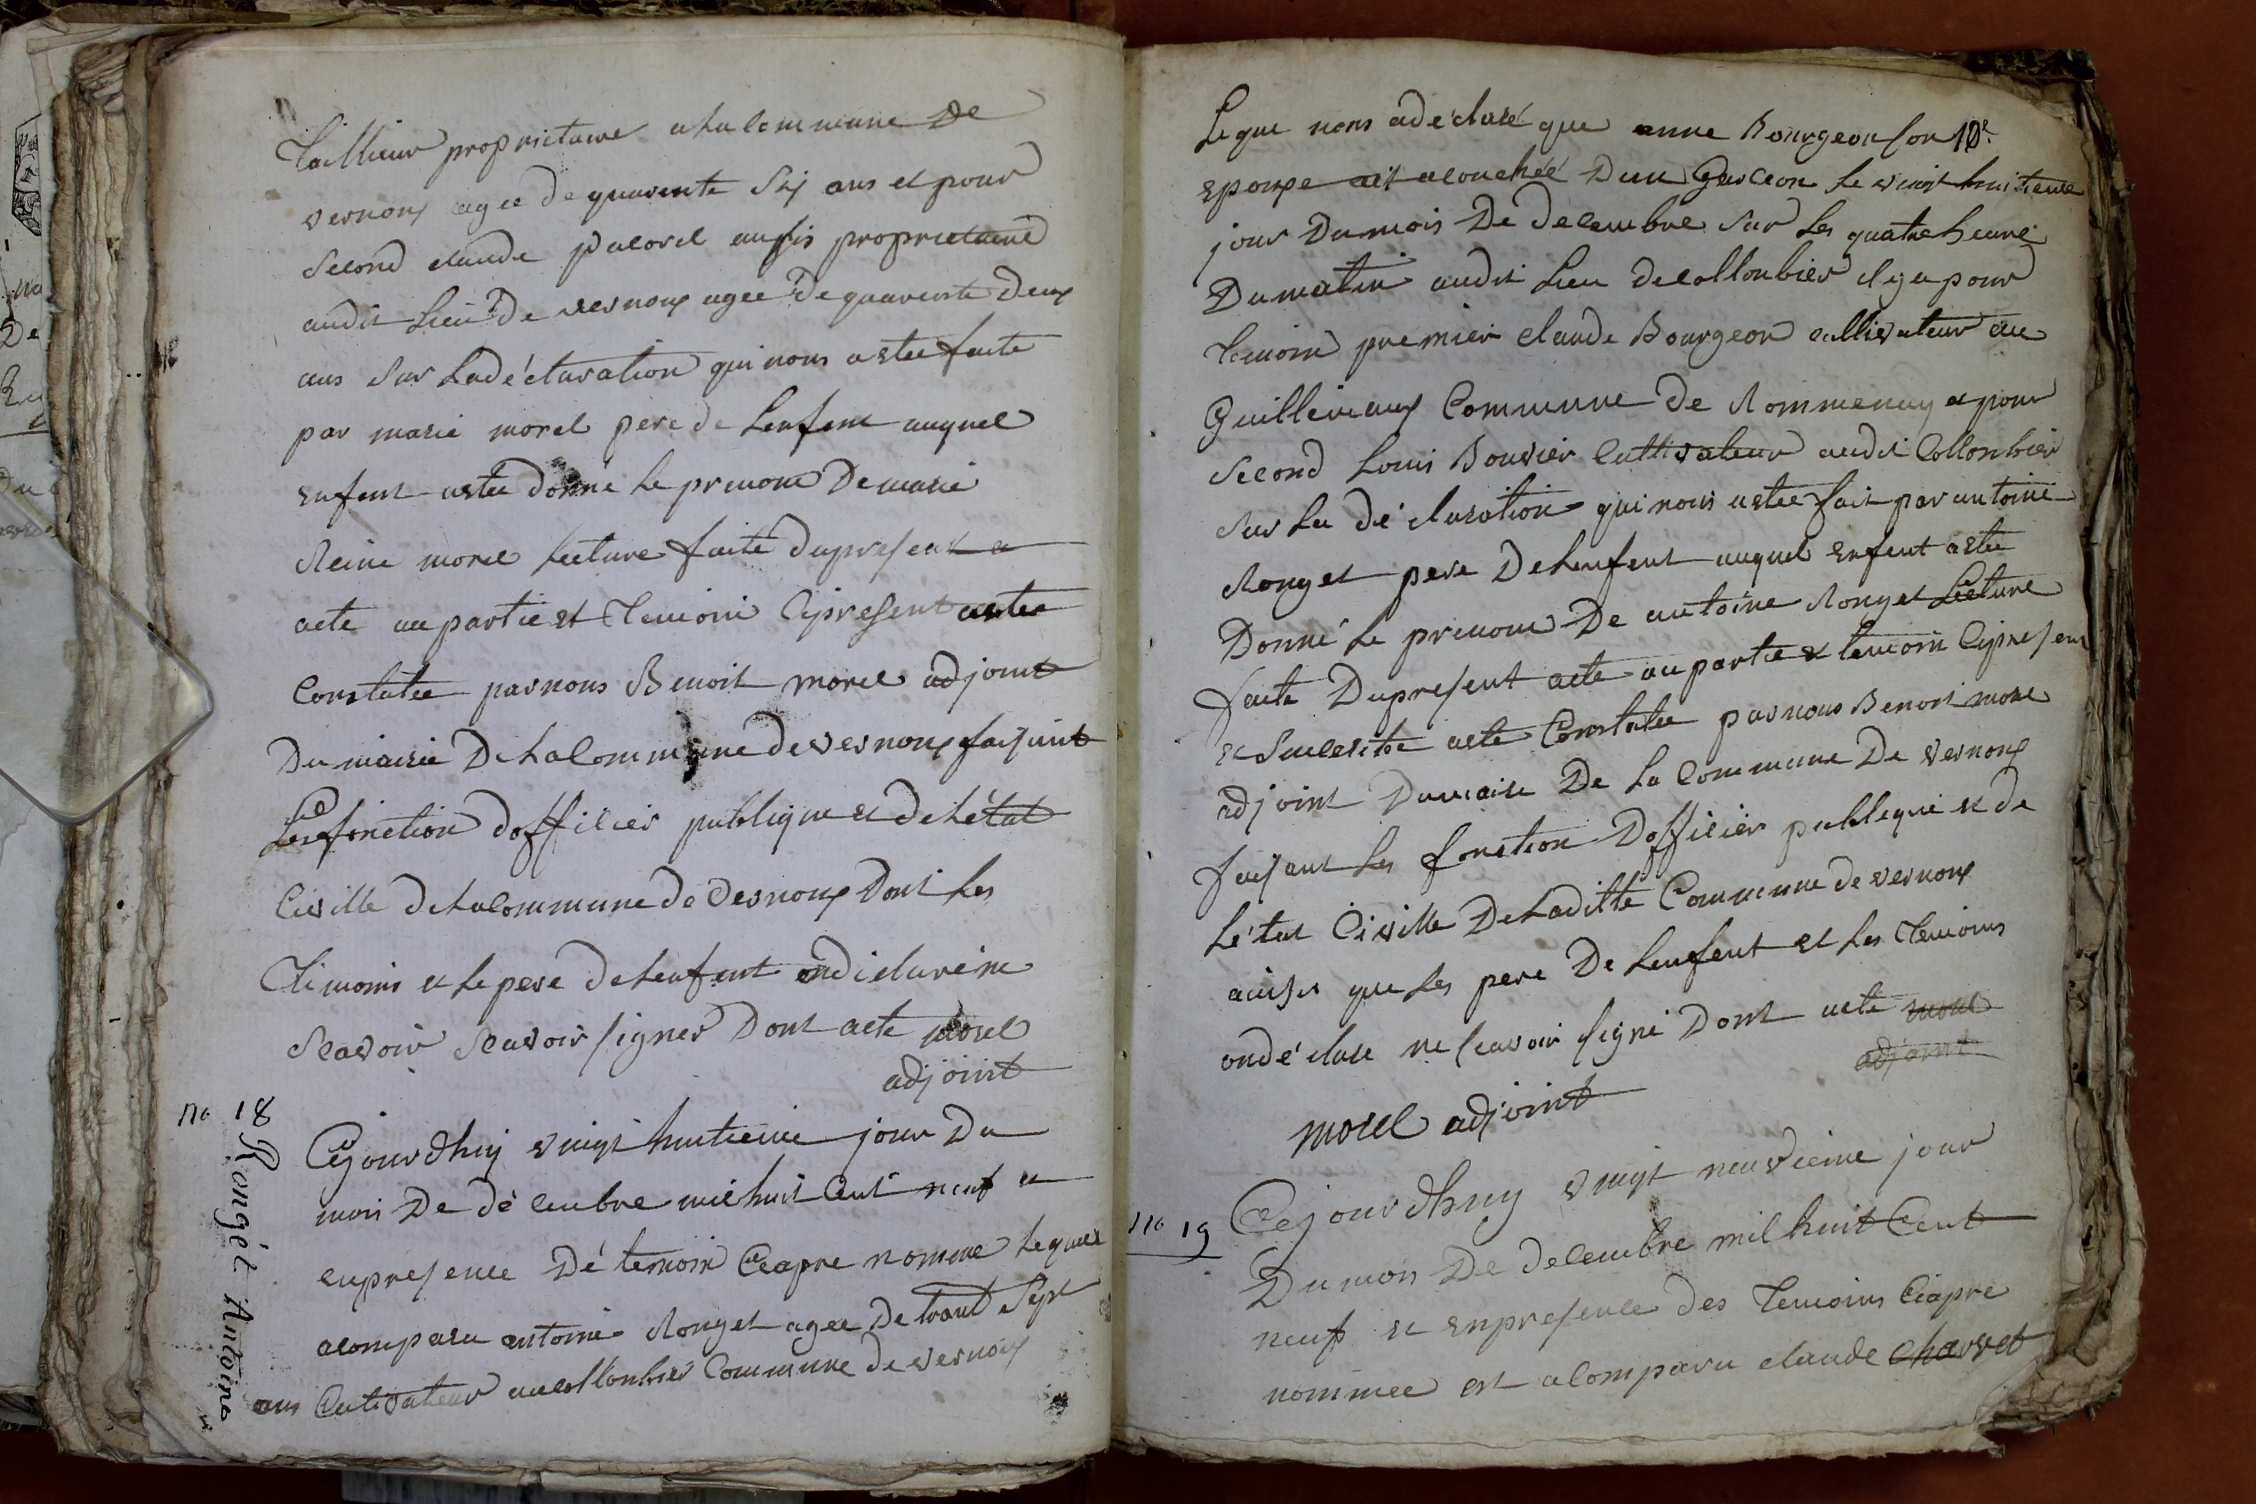 Taillieur proprietaire a la commune De
vernoux agee De quarente Six ans et pour
Second claude pacorel ausis proprietaire
audit Lieu De vernoux agee De quarente Deux
ans Sur La déclaration qui nous a etee faite
par marie morel pere de Lenfent auquel
enfent a etee donné Le prenom De marie
Reine morel Lecture faite du present a
acte au partie et Temoin Cy present acte
Constatee par nous Benoit morel adjoint
Du mairie De La Commune de vernoux faisant
Les fonction dofficier publique et de Létat
Civille de La Commune de Vernoux Dont Les
Témoins et Le pere de Lenfent on declaré ne
Scavoir Scavoir signer Dont acte morel
adjoint
no 18
Rongét Antoine
Cejourdhuy vingt huitieme jour Du
mois De décembre mil huit Cent neuf et
en presence Dé temoin Ceapre nomme Lequel
a comparu antoine Ronget agee De trant Sept
ans Cultivateur au collonbier Commune de vernoux
Leque nous a déclaré que anne Bourgeon son
epouse ait acouchéé Dun Garceon Le vingt huitieme
jour Du mois De Decembre Sur Les quatre heure
Du matin audit Lieu De collonbier il y a pour
Temoin premier claude Bourgeon cultivateur au
Guillemaux Commune De Rommenay et pour
Second Louis Bouvier Cultivateur audit Collonbier
Sur La déclaration qui nous a etee fait par antoine
Ronget pere De Lenfent auquel enfent a etee
Donné Le prenom De antoine Ronget Lecture
faite Du present acte au partie et temoin Cy present
et acte Constatee par nous Benoit morel
adjoint Du maire De La Commune De vernoux
faisant Les fonction Dofficier publique et de
Létat Civille De Laditte Commune de vernoux
ainsis que Les pere De Lenfent et Les Temoins
on déclare ne scavoir signé Dont acte morel
adjoint
morel adjoint
no 19
Cejourdhuy vingt neuvieme jour
Du mois De decembre mil huit Cent
neuf et en presence des Temoins Ciapre
nommee est a Comparu claude charvet